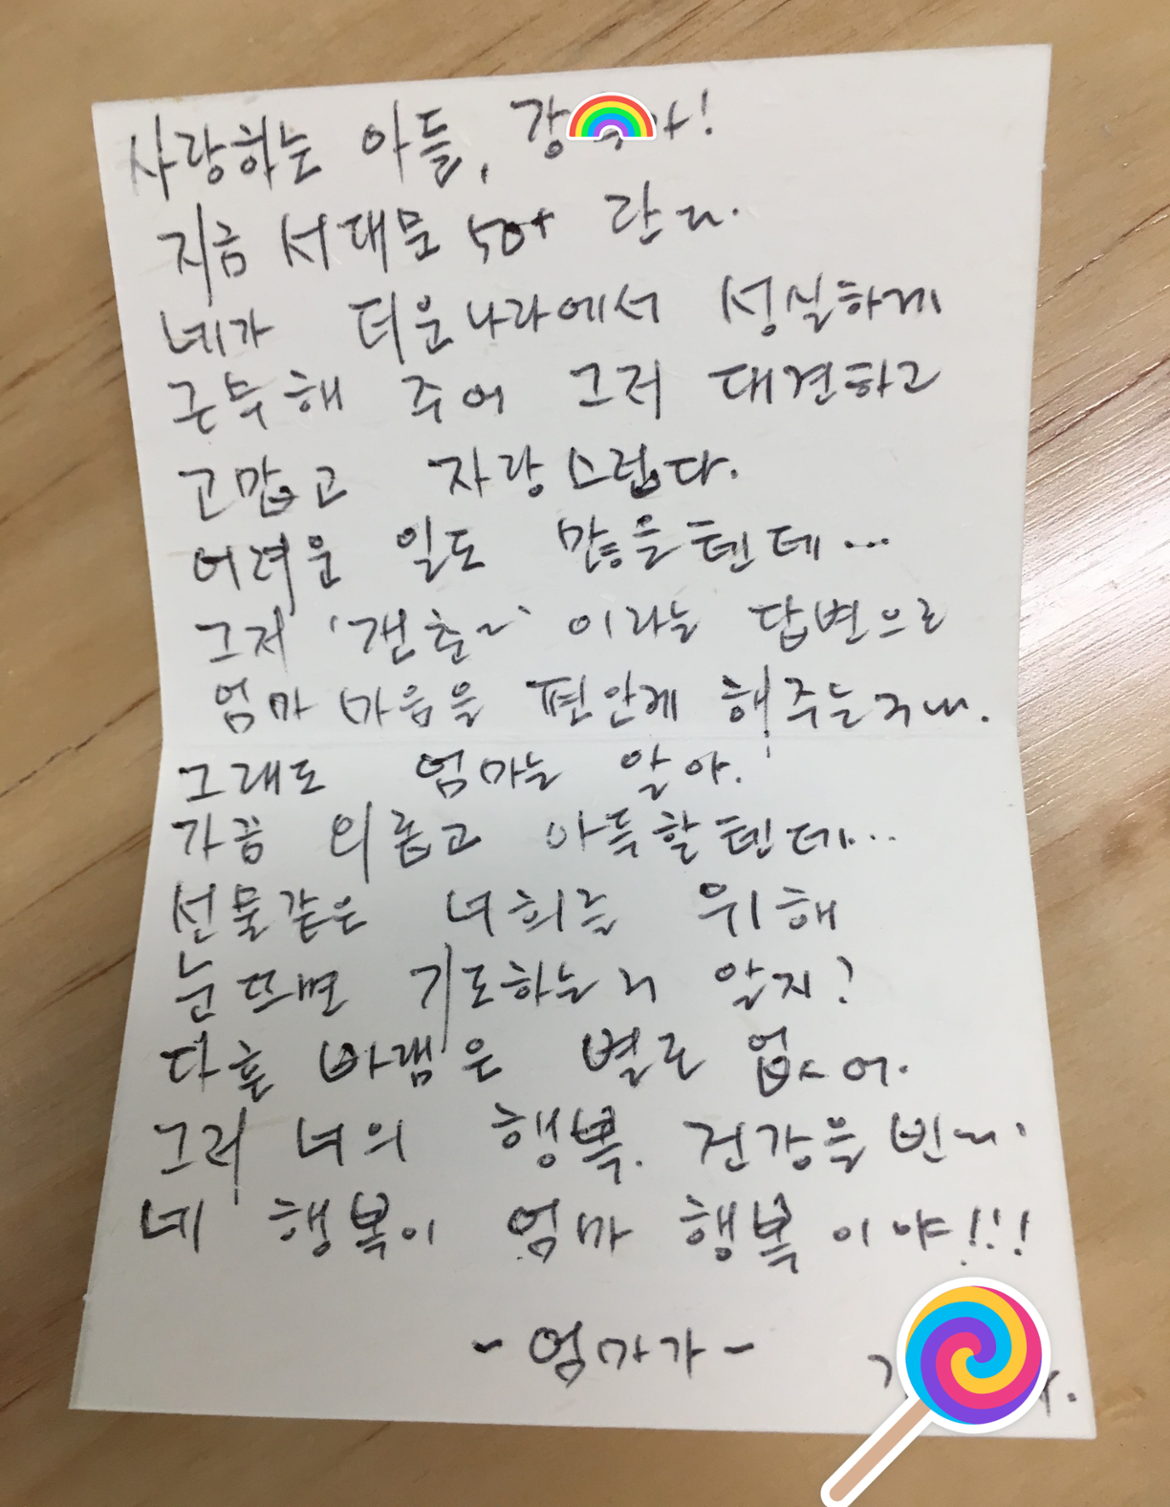 사랑하는 아들, 강
지금 서대문 50+ 란다.
네가 더운나라에서 성실하게
근무해 주어 그저 대견하고
고맙고 자랑스럽다.
어려운 일도 많을텐데...
그저 '갠춘~' 이라는 답변으로
엄마 마음을 편안케 해주는구나.
그래도 엄마는 알아.
가끔 외롭고 아득할텐데...
선물같은 너희를 위해
눈뜨면 기도하는거 알지?
다른 바램은 별로 없어.
그저 너의 행복. 건강을 빈다.
네 행복이 엄마 행복이야!!!
- 엄마가 -